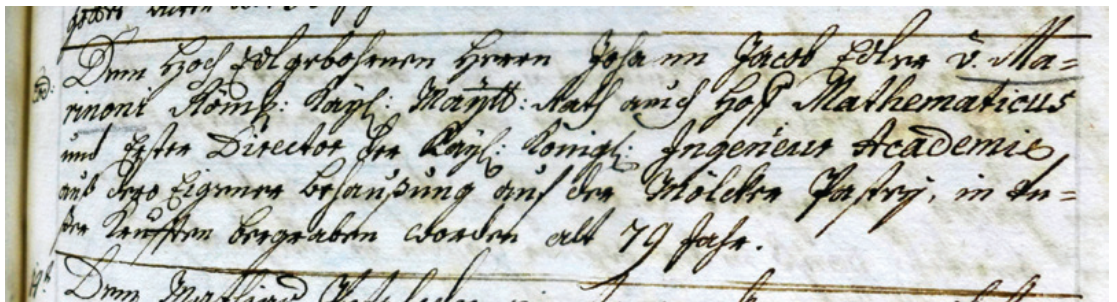 Dem Hoch Edlgebohrnen Herrn Johann Jacob Edler v. Ma=
rinoni Römis: Kayl: Maytt: Rath auch Hoff Mathematicus
und Erster Director der Kayl: Königl: Ingenieur Academie,
aus dero Eigener behaußung auf der Mölcker Pastey, in Un=
ser Krufften bergraben worden alt 79 Jahr.